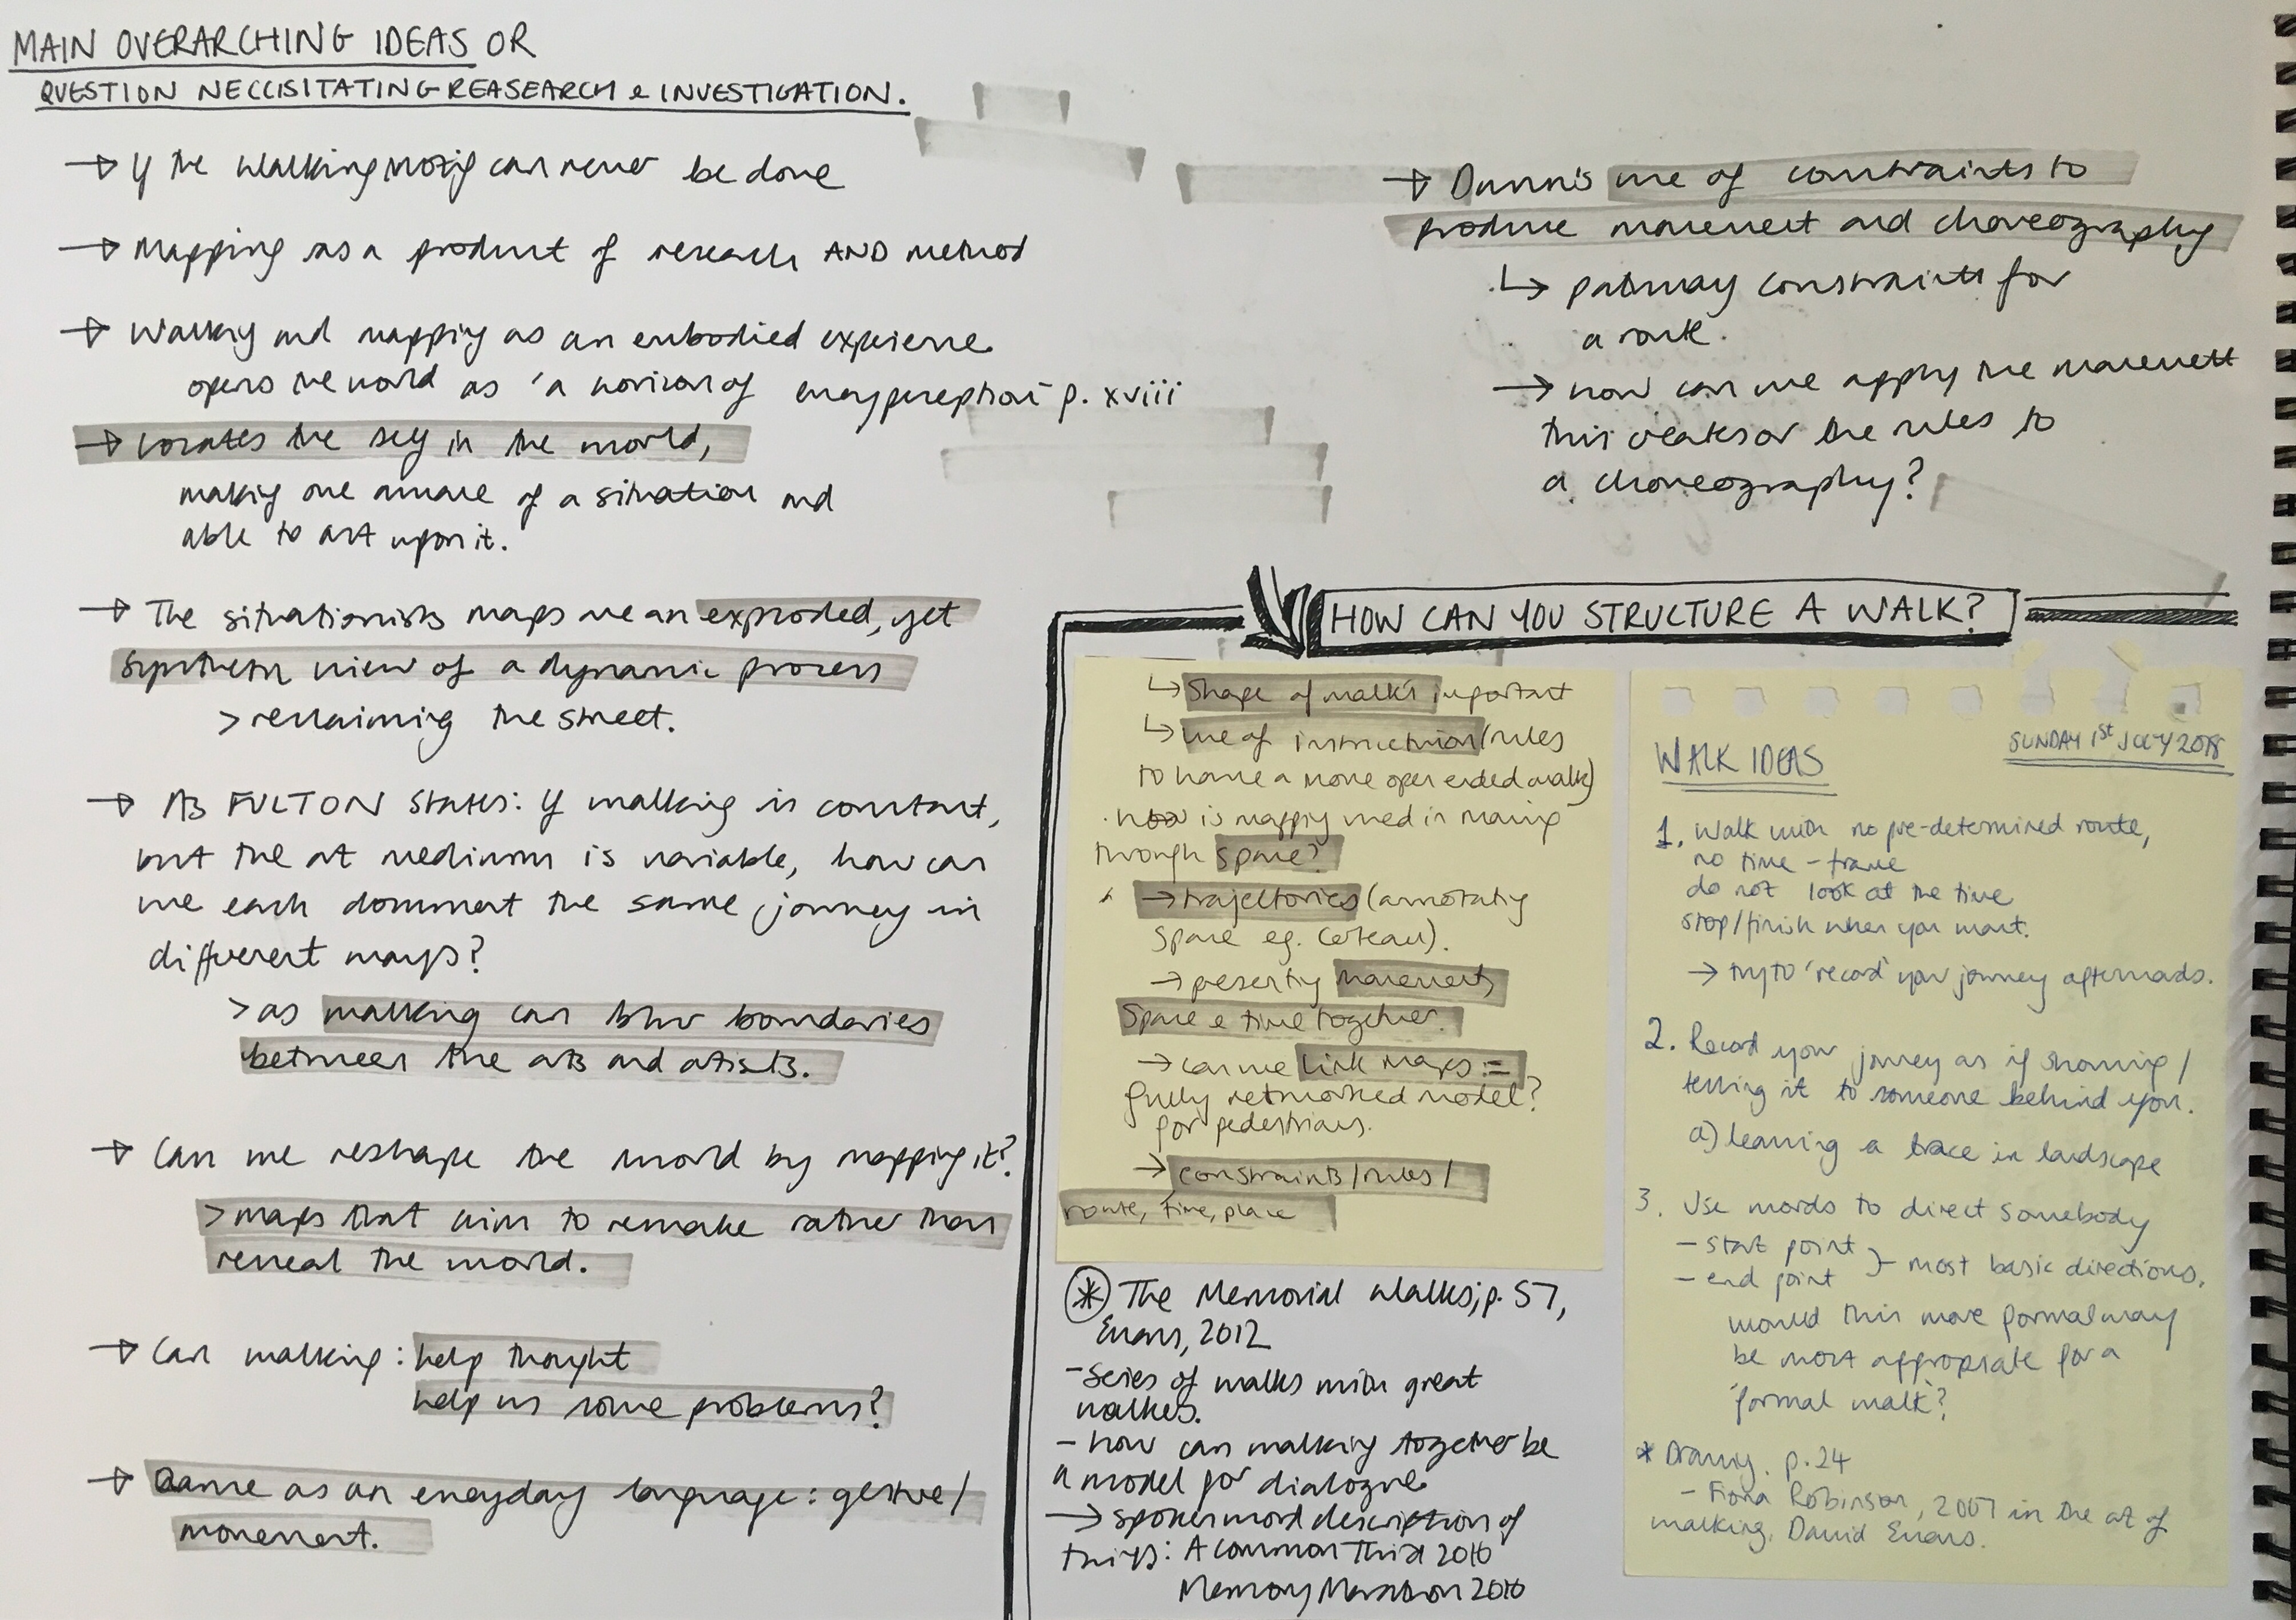 MAIN OVERARCHING IDEAS OR
QUESTION NECCISITATING REASEARCH & INVESTIGATION.
→ If the walking motif can never be done
→ Mapping as a product of research AND method
→ Walking and mapping as an embodied experience
opens the world as 'a horizon of every perception' p. xviii
→ Locates the self in the world,
making one aware of a situation and
able to act upon it.
→ The situationists maps are an exploded, yet
synthetic view of a dynamic process
> reclaiming the street.
→ As FULTON states: if walking is constant,
but the art medium is variable, how can
we each document the same journey in
different ways?
> as walking can blur boundaries
between the arts and artists.
→ Can we reshape the world by mapping it?
> maps that aim to remake rather than
reveal the world.
→ Can walking: help thought
help us solve problems?
→ Dance as an everyday language: gesture/
movement.
→ Dunn's use of constraints to
produce movement and choreography
↳ pathway constraints for
a route.
→ how can we apply the movement
this creates or the rules to
a choreography?
HOW CAN YOU STRUCTURE A WALK?
↳ Shape of walks important
↳ use of instruction (rules
to have a more open ended walk)
how is mapping used in moving
through space?
→ trajectories (annotating
space eg. Certeau).
→ presenting movement,
space & time together.
→ can we link maps =
fully networked model?
for pedestrians.
→ constraints/rules/
route, time, place
* The Memorial Walks, p. 57,
Evans, 2012
- Series of walks with great
walkers.
- how can walking together be
a model for dialogue
→ spoken word description of
things: A Common Third 2010
Memory Marathon 2010
SUNDAY 1st JULY 2018
WALK IDEAS
1. Walk with no pre-determined route,
no time-frame
do not look at the time
stop/finish when you want.
→ try to 'record' your journey afterwards.
2. Record your journey as if showing/
telling it to someone behind you.
a) leaving a trace in landscape
3. Use words to direct somebody
- start point
- end point } - most basic directions.
would this more formal way
be most appropriate for a
'formal walk'?
* Drawing. p. 24
- Fiona Robinson, 2007 in the art of
walking, David Evans.